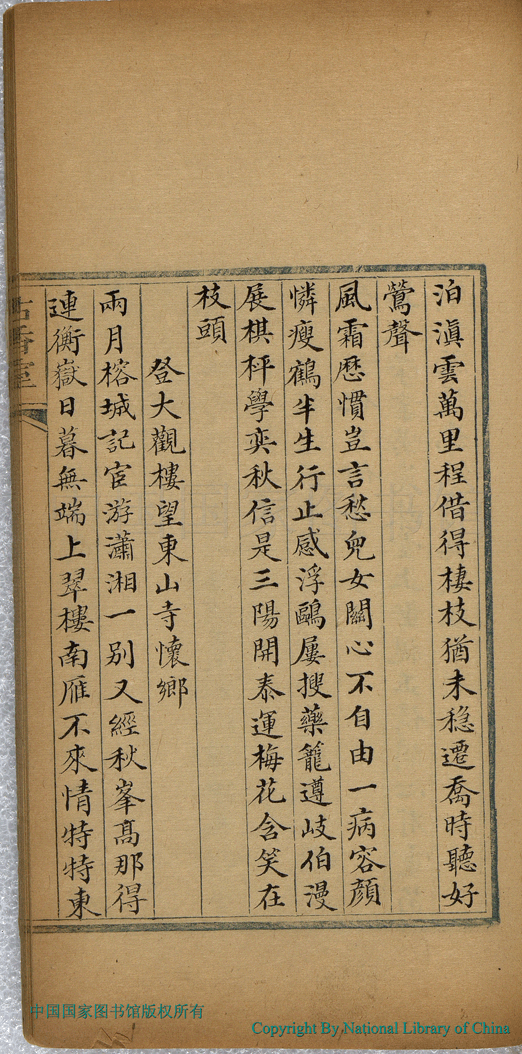 泊滇雲萬里程借得棲枝猶未穩遷喬時聽好
鶯聲
風霜歷慣豈言愁兒女關心不自由一病容顏
憐瘦鶴半生行止感浮鷗屢搜藥籠遵岐伯漫
展棋枰學奕秋信是三陽開泰運梅花含笑在
枝頭
登大觀樓望東山寺懷鄉
兩月榕城記宦游瀟湘一別又經秋峯髙那得
連衡嶽日暮無端上翠樓南雁不來情特特東
中国国家图书馆版权所有
Copyright By National Library of China